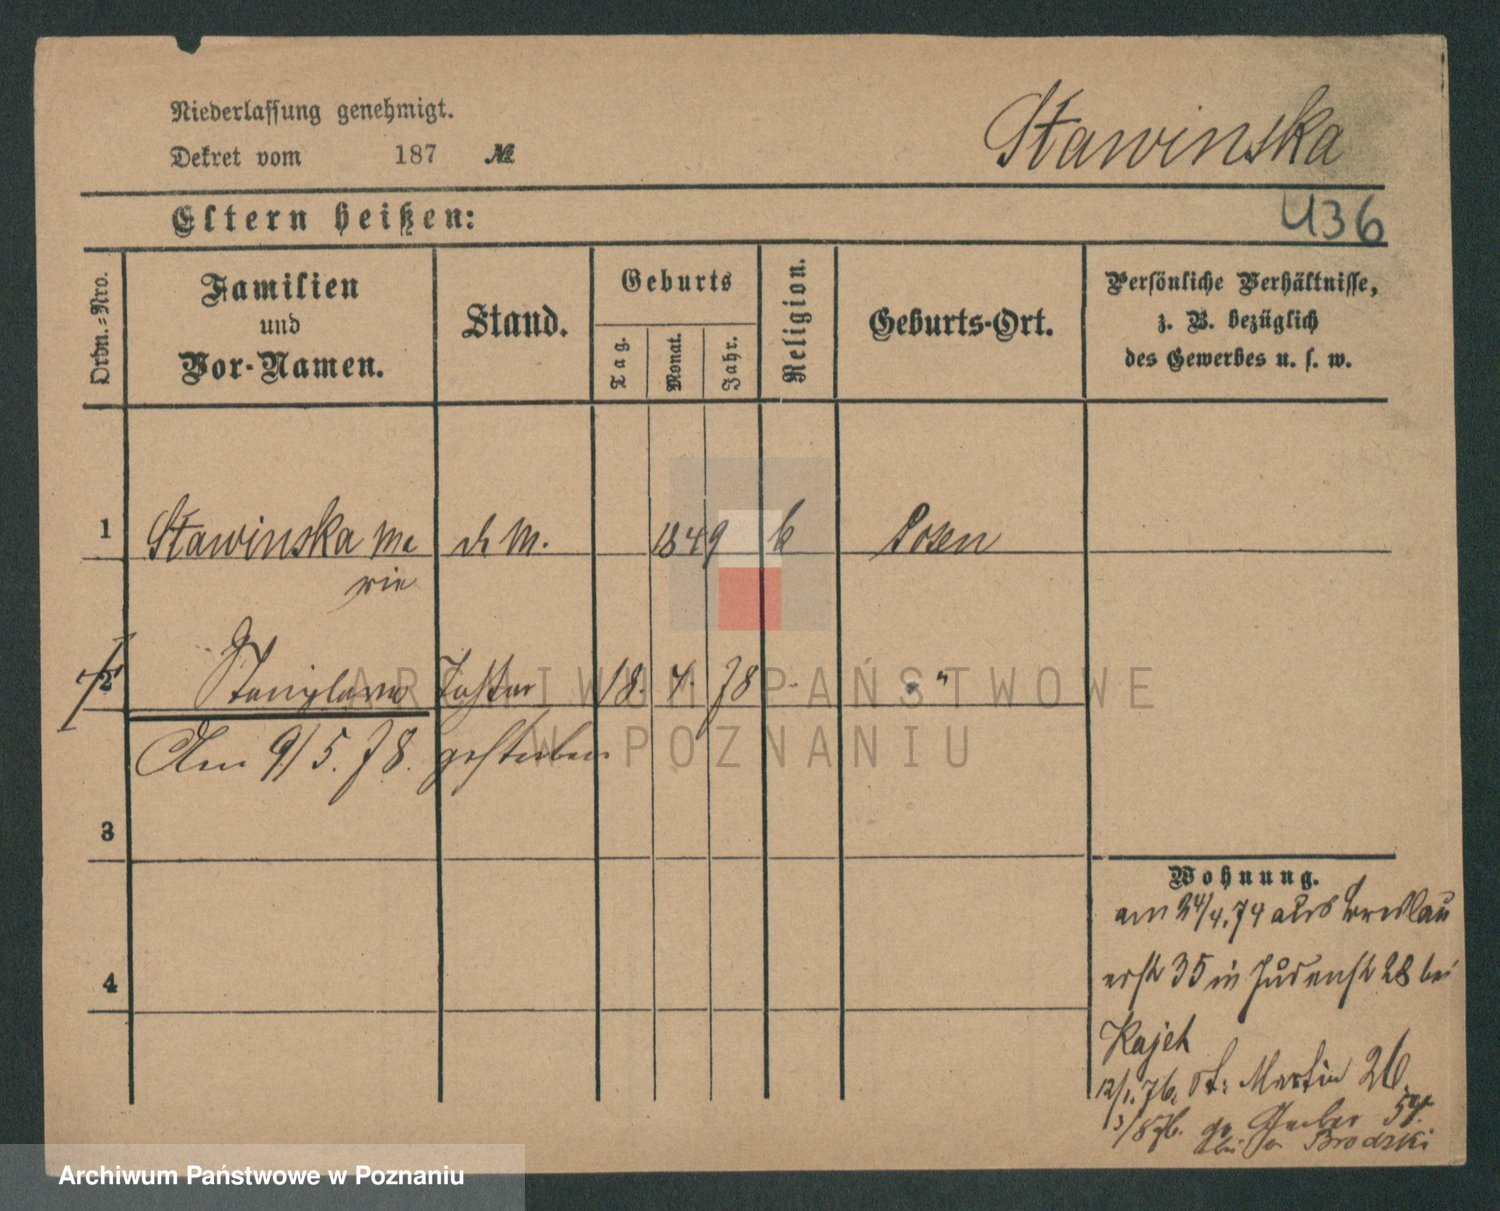 Niederlassung genehmigt.
Dekret vom 187 №
Stawinska
436
Eltern heißen:
Ordn.-Nro.
Familien
und
Vor-Namen.
Stand.
Geburts
Tag.
Monat.
Jahr.
Religion.
Geburts-Ort.
Persönliche Verhältnisse,
z. B. bezüglich
des Gewerbes u. s. w.
1 Stawinska Ma d. M. 1849 k Posen
rie
2 Stanislawa Tochter 18. 4. 78 "
Am 9/5. 78. gestorben
3
4
Wohnung.
am 24/4.74 aus Breslau
erst 35 in Judenst 28 bei
Kajet
12/1.76. St: Martin 26.
3/8 76. 57.
bei Brodzki
ARCHIWUM PAŃSTWOWE
W POZNANIU
Archiwum Państwowe w Poznaniu